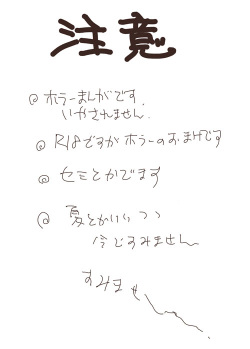 注意
@ ホラーまんがです.
いかされません.
@ R18ですが ホラーのおまけです
@ セミとかでます
@ 夏とかいいつつ
今ですみません
すみません